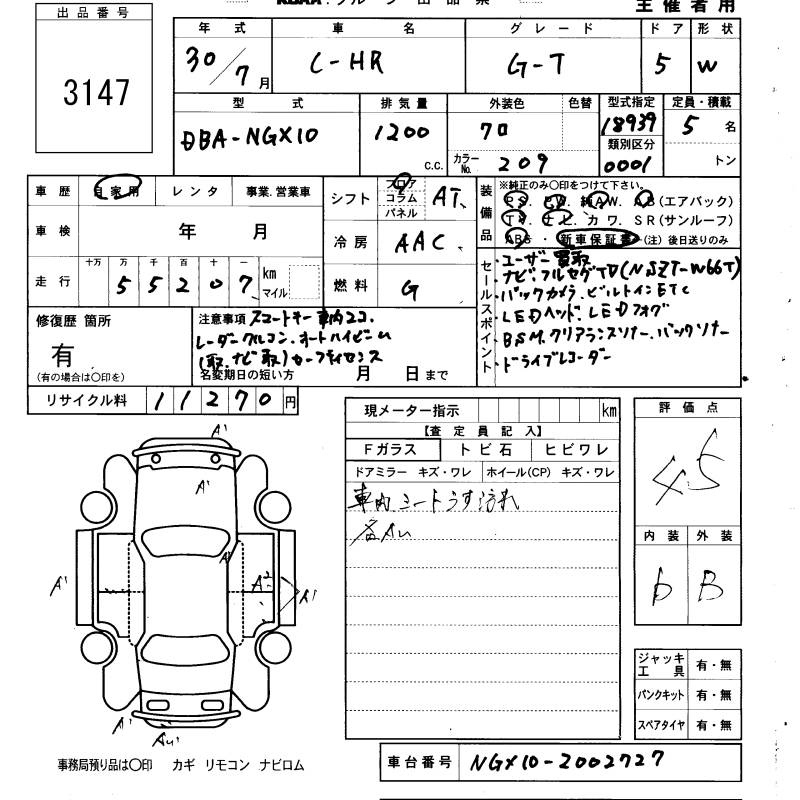 主催者用
出品番号
3147
年式 車名 グレード ドア 形状
30/7月 C-HR G-T 5 W
型式 排気量 外装色 色替 型式指定 定員・積載
DBA-NGX10 1200 c.c. クロ 18939 5名
カラーNo. 209 類別区分 0001 トン
車歴 自家用 レンタ 事業.営業車
車検 年 月
走行 十万 万 千 百 十 一
55207 km マイル
シフト フロア コラム パネル AT
冷房 AAC
燃料 G
装備品 ※純正のみ○印をつけて下さい。
PS. PW. 純AW. AB(エアバック)
TV. ナビ. カワ. SR(サンルーフ)
ABS・新車保証書(注)後日送りのみ
セールスポイント
・ユーザー買取
・ナビ.フルセグTV(NSZT-W66T)
・バックカメラ.ビルトインETC
・LEDヘッド.LEDフォグ
・BSM.クリアランスソナー.バックソナー
・ドライブレコーダー
修復歴 箇所
有
(有の場合は○印を)
注意事項 スマートキー車内2コ.
レーダークルコン.オートハイビーム
(取.ナビ取)セーフティセンス
名変期日の短い方 月 日まで
リサイクル料 11270円
現メーター指示 km
【査定員記入】
Fガラス トビ石 ヒビワレ
ドアミラー キズ・ワレ ホイール(CP) キズ・ワレ
車内シートうす汚れ
各AU
評価点
4.5
内装 外装
b B
A1
A1
A1
A1 A2 A1
A1
AU
ジャッキ工具 有・無
パンクキット 有・無
スペアタイヤ 有・無
事務局預り品は○印 カギ リモコン ナビロム
車台番号 NGX10-2002727